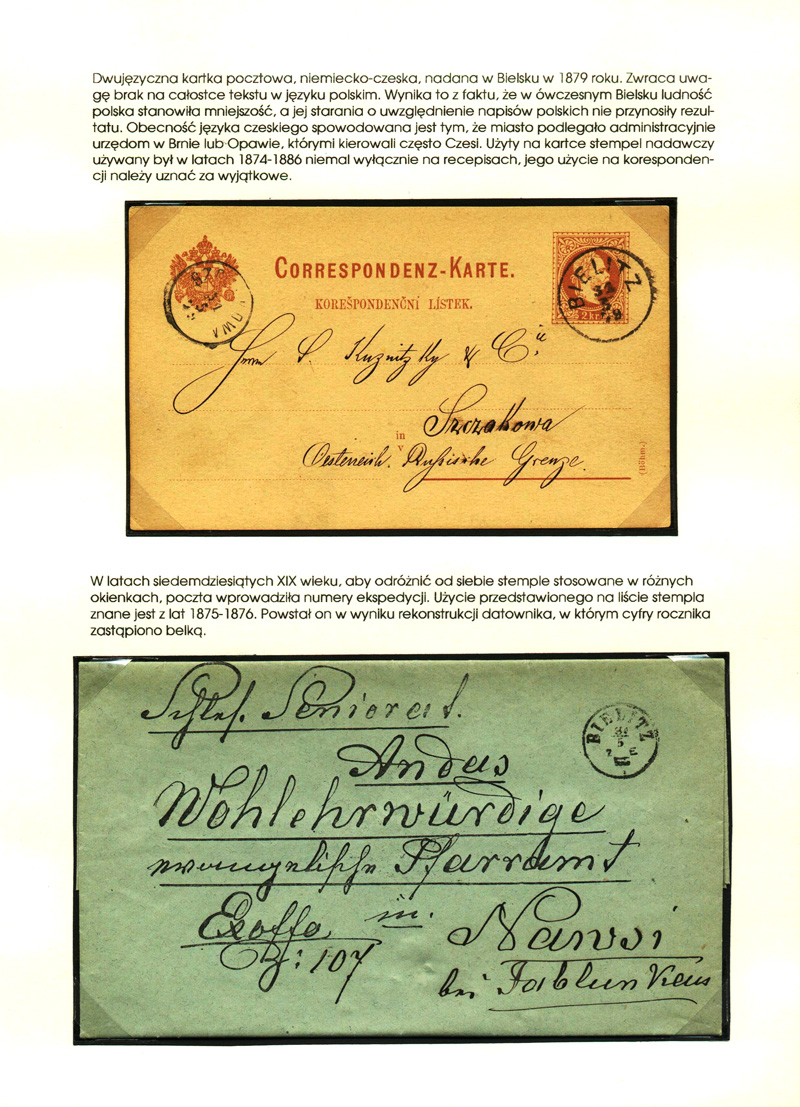 Dwujęzyczna kartka pocztowa, niemiecko-czeska, nadana w Bielsku w 1879 roku. Zwraca uwa-
gę brak na całostce tekstu w języku polskim. Wynika to z faktu, że w ówczesnym Bielsku ludność
polska stanowiła mniejszość, a jej starania o uwzględnienie napisów polskich nie przynosiły rezul-
tatu. Obecność języka czeskiego spowodowana jest tym, że miasto podlegało administracyjnie
urzędom w Brnie lub Opawie, którymi kierowali często Czesi. Użyty na kartce stempel nadawczy
używany był w latach 1874-1886 niemal wyłącznie na recepisach, jego użycie na koresponden-
cji należy uznać za wyjątkowe.
CORRESPONDENZ-KARTE.
KOREŠPONDENČNÍ LÍSTEK.
BIELITZ
79
2 kr.
OWA
Herrn S. Kuznitzky & Cie.
in Szczakowa
v
Oesterreich. Rußische Grenze.
(Böhm.)
W latach siedemdziesiątych XIX wieku, aby odróżnić od siebie stemple stosowane w różnych
okienkach, poczta wprowadziła numery ekspedycji. Użycie przedstawionego na liście stempla
znane jest z lat 1875-1876. Powstał on w wyniku rekonstrukcji datownika, w którym cyfry rocznika
zastąpiono belką.
Schles. Seniorat.
BIELITZ
31
5
7 E
An das
Wohlehrwürdige
evangelische Pfarramt
Exoffo in. Nawsi
Z: 107
bei Jablunkau